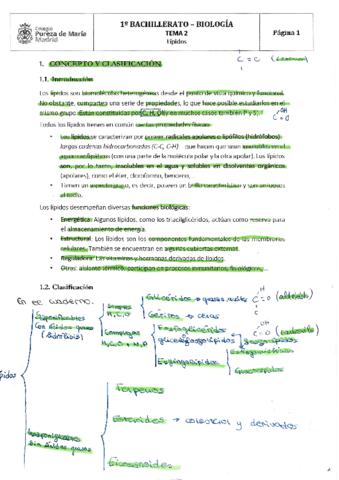 Colegio
Pureza de María
Madrid
1º BACHILLERATO – BIOLOGÍA
TEMA 2
Lípidos
Página 1
C = C
1. CONCEPTO Y CLASIFICACIÓN.
1.1. Introducción
Los lípidos son biomoléculas heterogéneas desde el punto de vista químico y funcional.
No obstante, comparten una serie de propiedades, lo que hace posible estudiarlos en el
mismo grupo. Están constituidas por C, H, O (y en muchos casos también P y S).
Todos los lípidos tienen en común ciertas propiedades físicas:
• Los lípidos se caracterizan por poseer radicales apolares o lipófilos (hidrófobos):
largas cadenas hidrocarbonadas (C-C, C-H) que hacen que sean insolubles en el
agua o anfipáticos (con una parte de la molécula polar y la otra apolar). Los lípidos
son, por lo tanto, insolubles en el agua y solubles en disolventes orgánicos
(apolares), como el éter, cloroformo, benceno, ...
• Tienen un aspecto graso, es decir, poseen un brillo característico y son untuosos
al tacto.
Los lípidos desempeñan diversas funciones biológicas:
• Energética: Algunos lípidos, como los triacilglicéridos, actúan como reserva para
el almacenamiento de energía.
• Estructural: Los lípidos son los componentes fundamentales de las membranas
celulares. También se encuentran en algunas cubiertas externas.
• Reguladora: Las vitaminas y hormonas derivadas de lípidos.
• Otros: aislante térmico, participan en procesos inmunitarios, fisiológicos...
1.2. Clasificación
En el cuaderno.
Saponificables
Con ácidos grasos
Simples
H, C, O
Glicéridos → grasas
Céridos → ceras
C = O (aldehído)
OH
Complejos
H, C, O + N, P
Fosfoglicéridos
Esfingolípidos
lípidos
Insaponificables
Sin ácidos grasos
Terpenos
Esteroides → colesterol y derivados
Eicosanoides